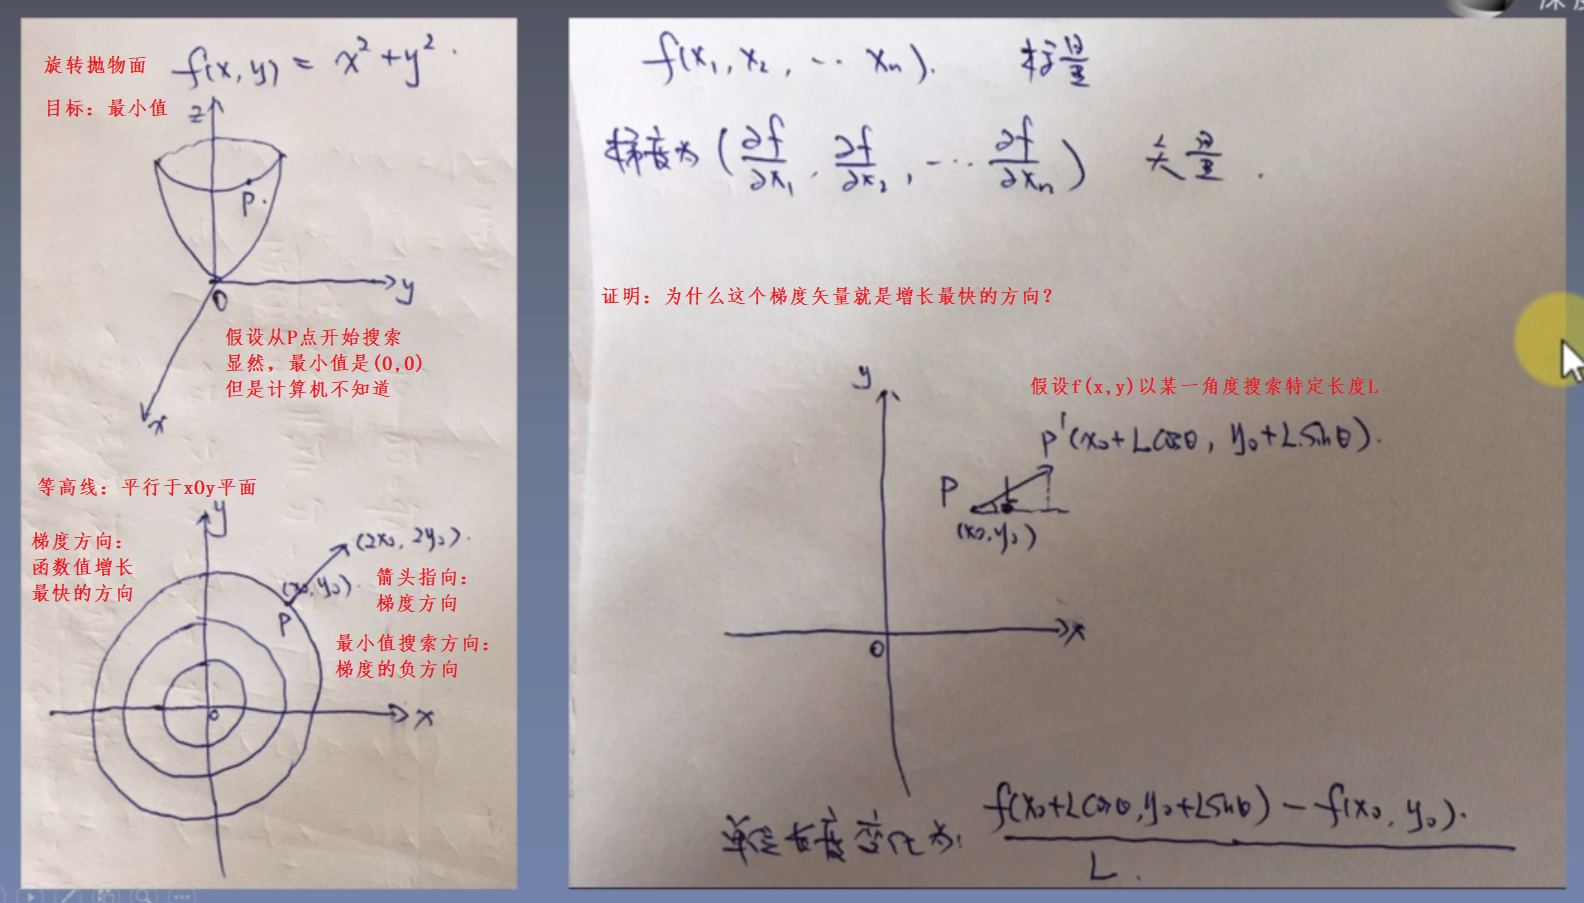 旋转抛物面 f(x,y) = x²+y².
目标：最小值
z
P.
O
y
x
假设从P点开始搜索
显然，最小值是(0,0)
但是计算机不知道
等高线：平行于xOy平面
y
梯度方向：
函数值增长
最快的方向
(2x₀, 2y₀).
(x₀, y₀).
P
箭头指向：
梯度方向
最小值搜索方向：
梯度的负方向
o
x
f(x₁, x₂, ... xₙ). 标量
梯度为 (∂f/∂x₁, ∂f/∂x₂, ... ∂f/∂xₙ) 矢量.
证明：为什么这个梯度矢量就是增长最快的方向？
y
假设f(x,y)以某一角度搜索特定长度L
P'(x₀+Lcosθ, y₀+Lsinθ).
P
(x₀,y₀)
x
O
单位长度变化为: f(x₀+Lcosθ,y₀+Lsinθ) − f(x₀, y₀).
L.